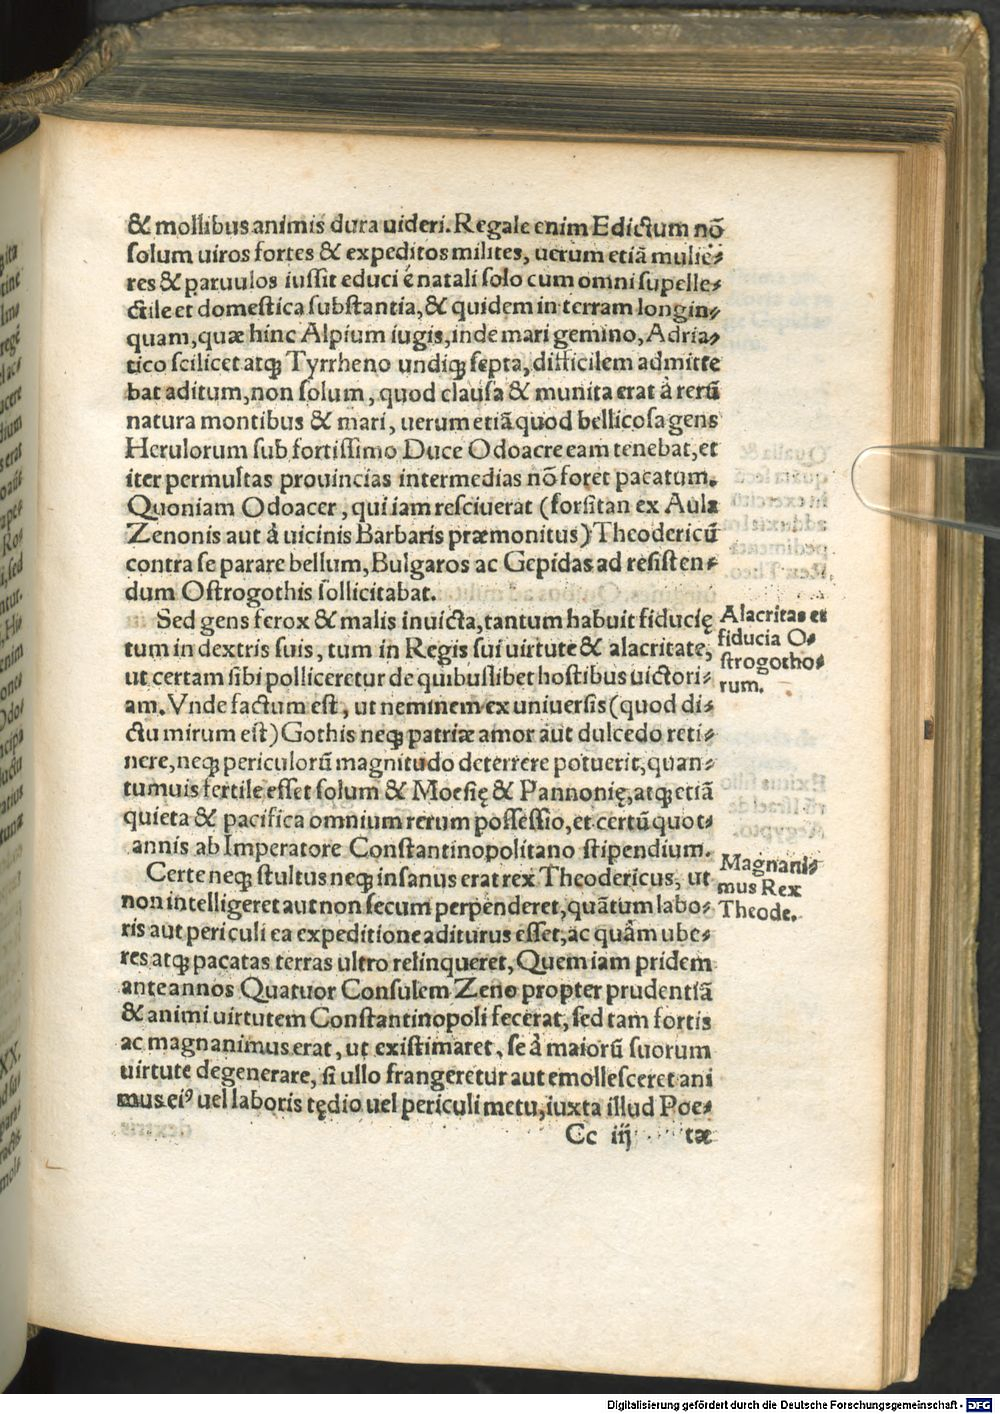 & mollibus animis dura uideri. Regale enim Edictum nō
solum uiros fortes & expeditos milites, uerum etiā mulie⸗
res & paruulos iussit educi é natali solo cum omni supelle⸗
ctile et domestica substantia, & quidem in terram longin⸗
quam, quæ hinc Alpium iugis, inde mari gemino, Adria⸗
tico scilicet atqꝫ Tyrrheno undiqꝫ septa, difficilem admitte
bat aditum, non solum, quod clausa & munita erat à rerū
natura montibus & mari, uerum etiā quod bellicosa gens
Herulorum sub fortissimo Duce Odoacre eam tenebat, et
iter per multas prouincias intermedias nō foret pacatum.
Quoniam Odoacer, qui iam resciuerat (forsitan ex Aula
Zenonis aut à uicinis Barbaris præmonitus) Theodericū
contra se parare bellum, Bulgaros ac Gepidas ad resisten⸗
dum Ostrogothis sollicitabat.
Sed gens ferox & malis inuicta, tantum habuit fiducię
tum in dextris suis, tum in Regis sui uirtute & alacritate,
ut certam sibi polliceretur de quibuslibet hostibus uictori⸗
am. Vnde factum est, ut neminem ex uniuersis (quod di⸗
ctu mirum est) Gothis neqꝫ patriæ amor aut dulcedo reti⸗
nere, neqꝫ periculorū magnitudo deterrere potuerit, quan⸗
tumuis fertile esset solum & Moesię & Pannonię, atqꝫ etiā
quieta & pacifica omnium rerum possessio, et certū quot⸗
annis ab Imperatore Constantinopolitano stipendium.
Certe neqꝫ stultus neqꝫ insanus erat rex Theodericus, ut
non intelligeret aut non secum perpenderet, quātum labo⸗
ris aut periculi ea expeditione aditurus esset, ac quâm ube⸗
res atqꝫ pacatas terras ultro relinqueret, Quem iam pridem
ante annos Quatuor Consulem Zeno propter prudentiā
& animi uirtutem Constantinopoli fecerat, sed tam fortis
ac magnanimus erat, ut existimaret, se à maiorū suorum
uirtute degenerare, si ullo frangeretur aut emollesceret ani
mus eiꝰ uel laboris tędio uel periculi metu, iuxta illud Poe⸗
Cc iij tæ
Alacritas et
fiducia O⸗
strogotho⸗
rum.
Magnani⸗
mus Rex
Theode.
Digitalisierung gefördert durch die Deutsche Forschungsgemeinschaft - DFG